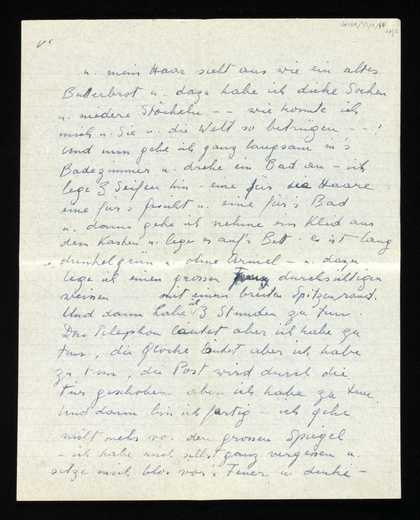 u. mein Haar sieht aus wie ein altes
Butterbrot u. dazu habe ich dicke Socken
u. niedere Stöckeln -- wie konnte ich
mich u. Sie u. die Welt so betrügen --!
Und nun gehe ich ganz langsam in's
Badezimmer u. drehe ein Bad an - ich
lege 3 Seifen hin - eine für die Haare
eine für's Gesicht u. eine für's Bad
u. dann gehe ich nehme ein Kleid aus
dem Kasten u. lege es auf's Bett - es ist lang
dunkelgrün u. ohne Ärmel - u. dazu
lege ich einen grossen durchsichtigen
weissen mit einem breiten Spitzenrand.
Und dann habe ich 3 Stunden zu tun.
Das Telephon läutet aber ich habe zu
tun, die Glocke läutet aber ich habe
zu tun, die Post wird durch die
Tür geschoben aber ich habe zu tun
Und dann bin ich fertig - ich gehe
nicht mehr vor den grossen Spiegel
- ich habe mich selbst ganz vergessen u.
setze mich blos vor's Feuer u denke -